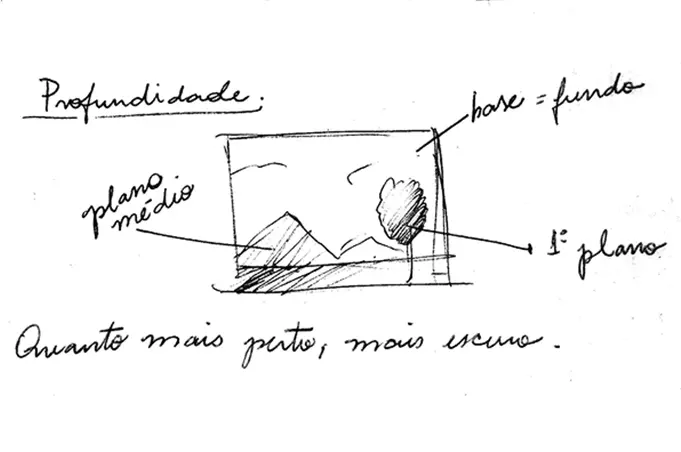 Profundidade:
base = fundo
plano
médio
1º plano
Quanto mais perto, mais escuro.